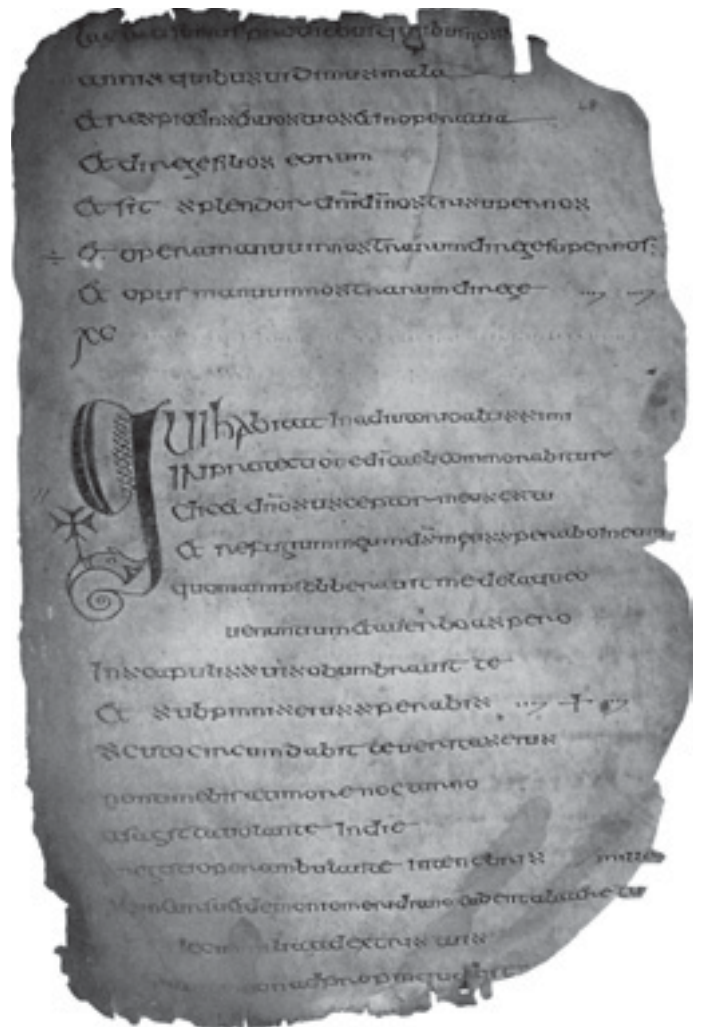 sumus pro diebus quibus nos
annis quibus uidimus mala
Et respice in seruos tuos et in opera tua
Et dirige filios eorum
Et sit splendor dn̄i dī nostri super nos
÷ Et opera manuum nostrarum dirige super nos:
Et opus manuum nostrarum dirige
xc
Qui habitat in adiutorio altissimi
in protectione dī caeli commorabitur
dicet dn̄o susceptor meus es tu
Et refugium meum dŝ meus sperabo in eum
quoniam ipse liberauit me de laqueo
uenantium et a uerbo aspero
In scapulis suis obumbrauit te
Et sub pinnis eius sperabis
Scuto circumdabit te ueritas eius
non timebis a timore nocturno
a sagitta uolante in die
perambulante in tenebris mille
demonio meridiano cadent a latere tuo
a dextris tuis
adpropinquabit